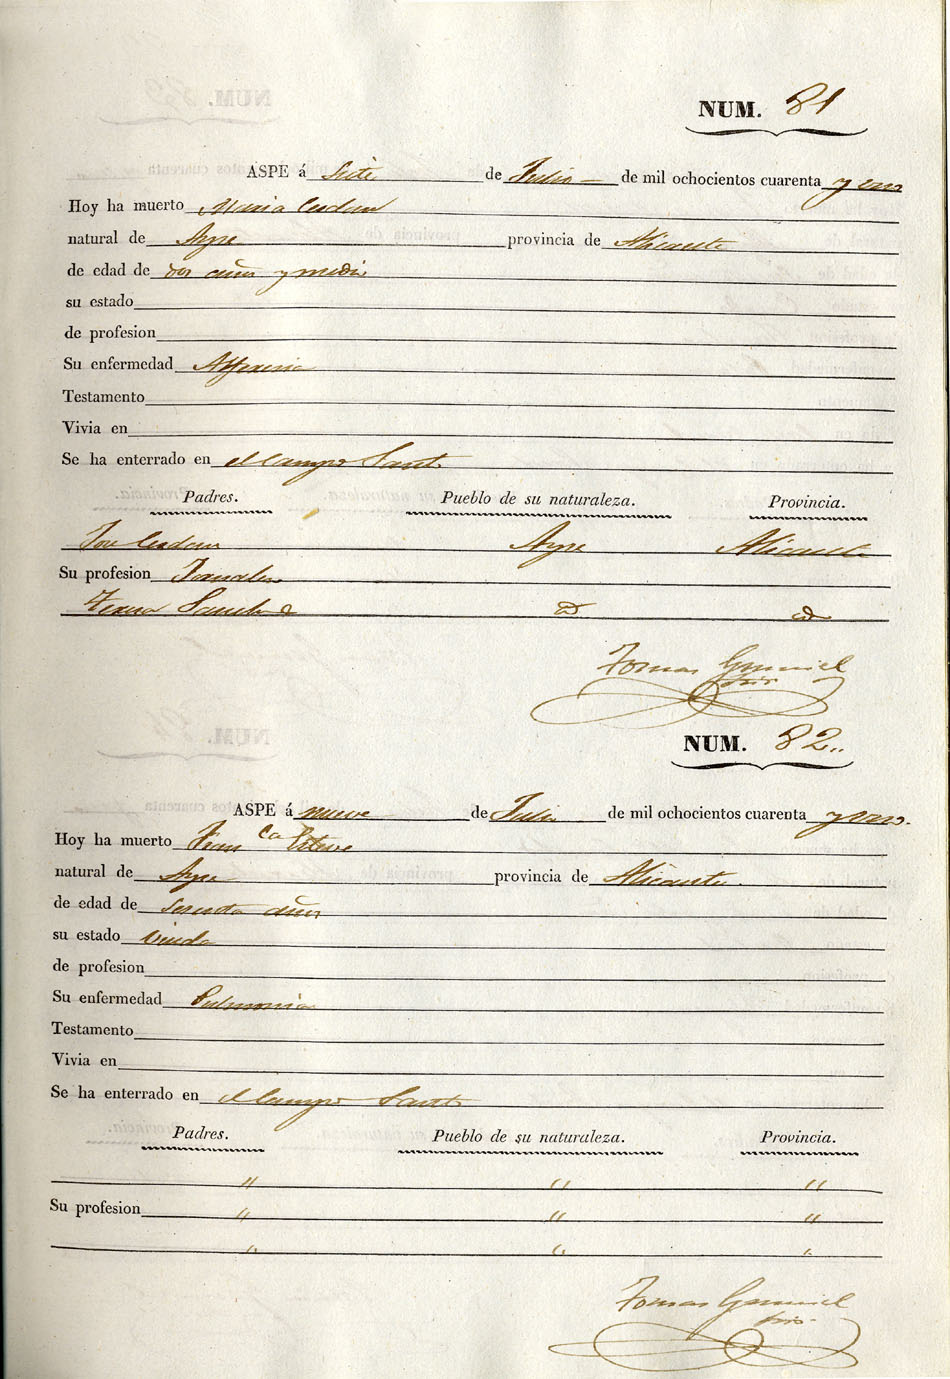 NUM. 81
ASPE á Siete de Julio — de mil ochocientos cuarenta y uno
Hoy ha muerto Maria Cerdan
natural de Aspe provincia de Alicante
de edad de dos años y medio
su estado
de profesion
Su enfermedad Alferecia
Testamento
Vivia en
Se ha enterrado en el Campo Santo
Padres. Pueblo de su naturaleza. Provincia.
Jose Cerdan Aspe Alicante
Su profesion Jornalero
Teresa Sanchez
Tomas
NUM. 82..
ASPE á nueve de Julio de mil ochocientos cuarenta y uno.
Hoy ha muerto Fran ca Esteve
natural de Aspe provincia de Alicante.
de edad de sesenta años
su estado Viuda
de profesion
Su enfermedad Pulmonia
Testamento
Vivia en
Se ha enterrado en el Campo Santo
Padres. Pueblo de su naturaleza. Provincia.
" " "
Su profesion " " "
" " "
Tomas